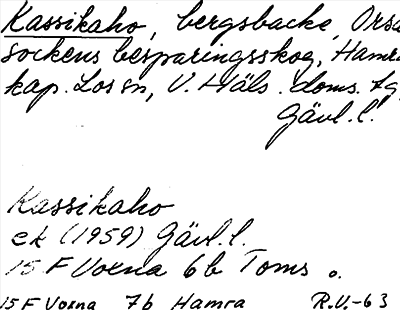 Kassikaho, bergsbacke, Orsa
sockens besparingsskog, Hamra
kap. Los sn, V. Häls. doms. tg
Gävl. l.
Kassikaho
ek (1959) Gävl. l.
15 F Voxna 6b Toms o.
15 F Voxna 7b Hamra R.V.-63